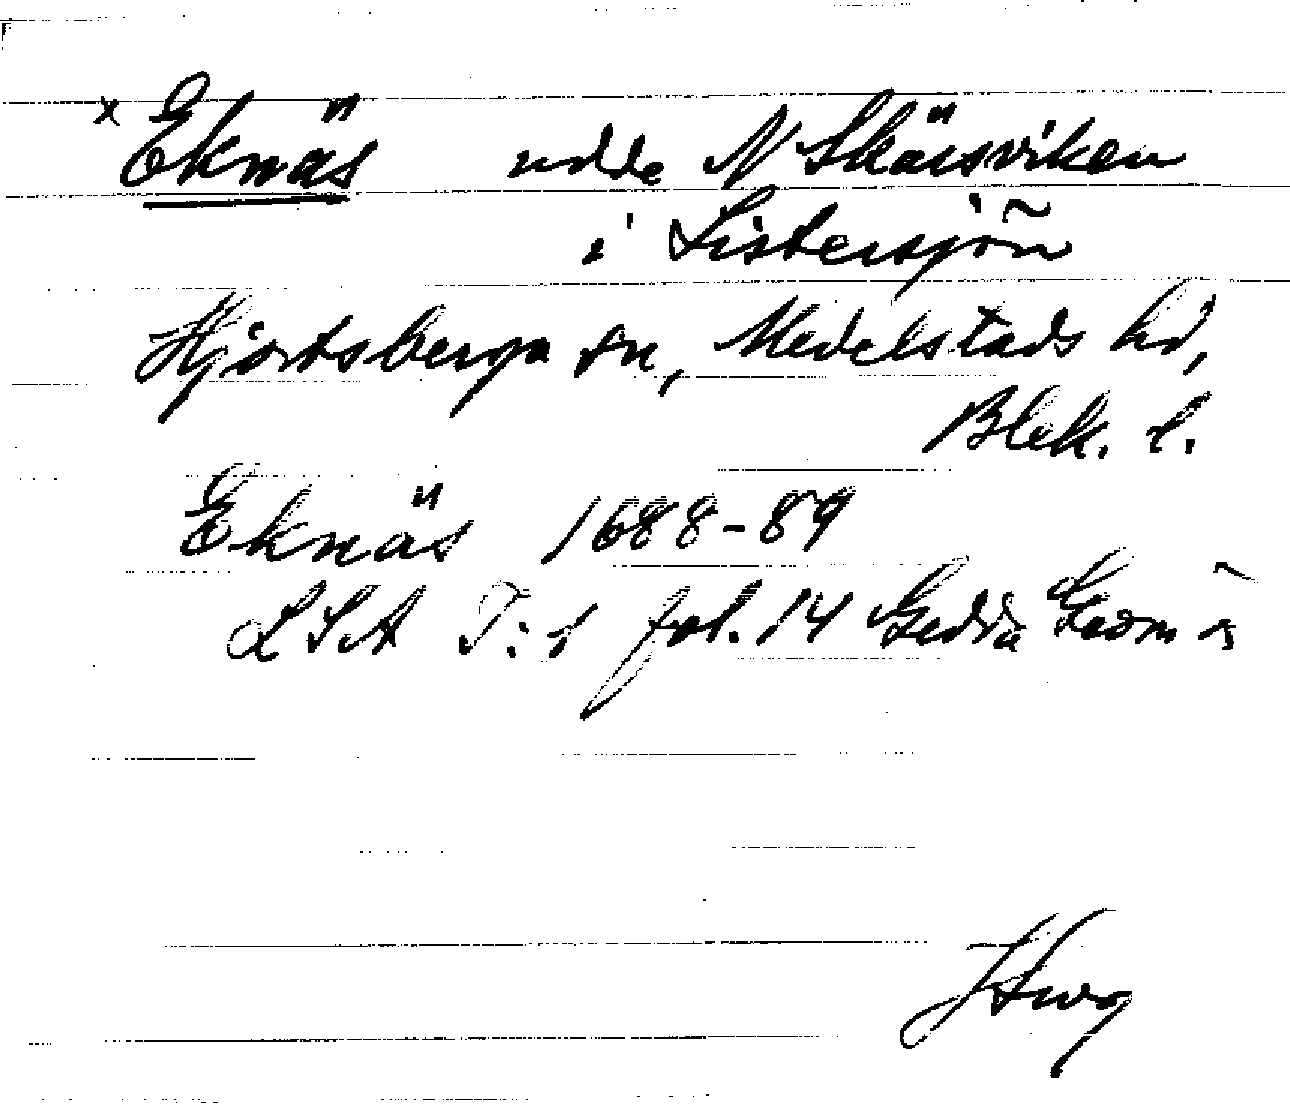 x Eknäs udde N Skärsviken
i Listersjön
Hjortsberga sn, Medelstads hd,
Blek. l.
Eknäs 1688-89
LSA T:1 fol. 14 Gedda Geom